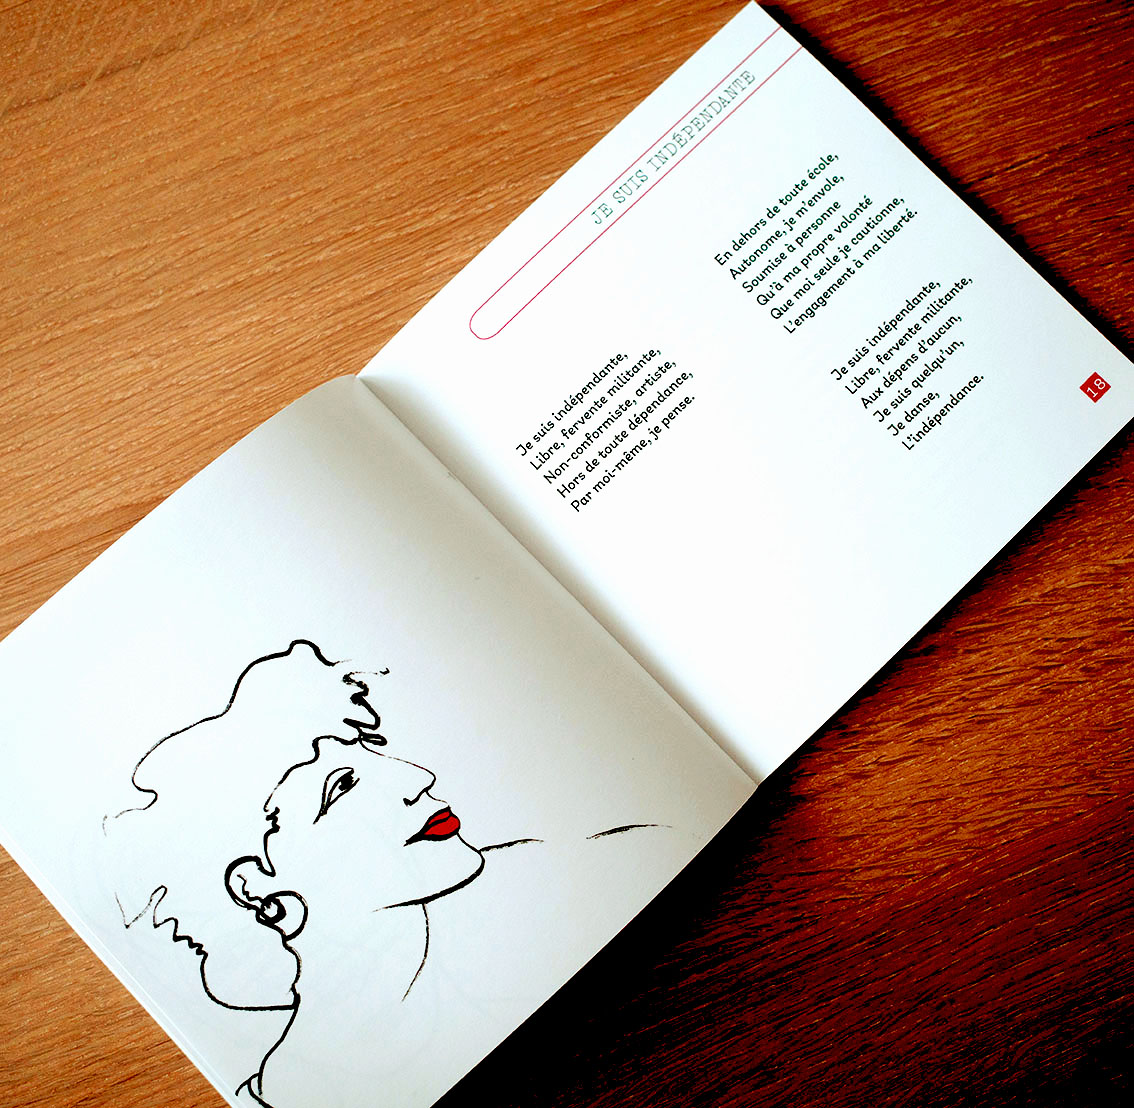 JE SUIS INDÉPENDANTE
Je suis indépendante,
Libre, fervente militante,
Non-conformiste, artiste,
Hors de toute dépendance,
Par moi-même, je pense.
En dehors de toute école,
Autonome, je m'envole,
Soumise à personne
Qu'à ma propre volonté
Que moi seule je cautionne,
L'engagement à ma liberté.
Je suis indépendante,
Libre, fervente militante,
Aux dépens d'aucun,
Je suis quelqu'un,
Je danse,
L'indépendance.
18